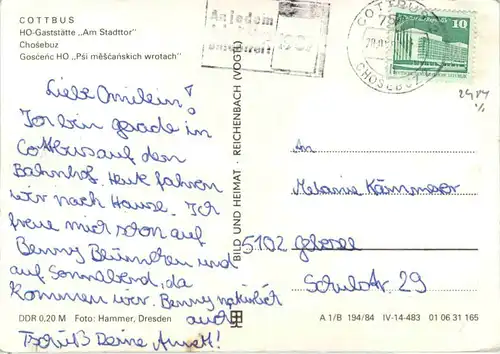 COTTBUS
HO-Gaststätte „Am Stadttor"
Chośebuz
Gosćeńc HO „Pśi měšćańskich wrotach"
An jedem
COTTBUS
CHOSEBUZ
10
DDR
2484
Liebe Omilein!
Ich bin gerade in
Cottbus auf dem
Bahnhof. Heute fahren
wir nach Hause. Ich
freue mich schon auf
Benny Blümchen und
auf Sonnabend, da
kommen wir. Benny natürlich
auch
Tschüß Deine Annett!
BILD UND HEIMAT · REICHENBACH (VOGTL)
An
Melanie Kämmerer
5102 Gebesee
Schulstr. 29
DDR 0,20 M Foto: Hammer, Dresden
A 1/B 194/84 IV-14-483 01 06 31 165